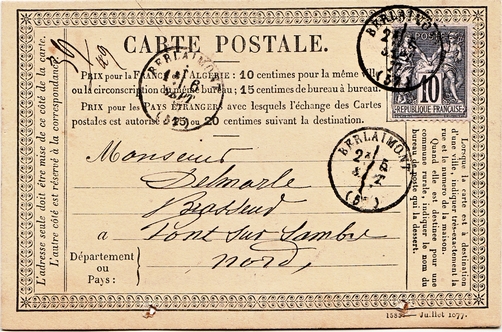 CARTE POSTALE.
PRIX pour la FRANCE et l'ALGÉRIE: 10 centimes pour la même ville
ou la circonscription du même bureau; 15 centimes de bureau à bureau.
PRIX pour les PAYS ÉTRANGERS avec lesquels l'échange des Cartes
postales est autorisé 15 ou 20 centimes suivant la destination.
BERLAIMONT
BERLAIMONT
BERLAIMONT
POSTES
10
REPUBLIQUE FRANÇAISE
L'adresse seule doit être mise de ce côté de la carte.
L'autre côté est réservé à la correspondance.
Monsieur
Delmarle
Brasseur
a Pont sur Sambre
Nord,
Département
ou
Pays:
Lorsque la carte est à destination
d'une ville, indiquer très-exactement la
rue et le numéro de la maison.
Quand elle est destinée pour une
commune rurale, indiquer le nom du
bureau de poste qui la dessert.
Juillet 1877.